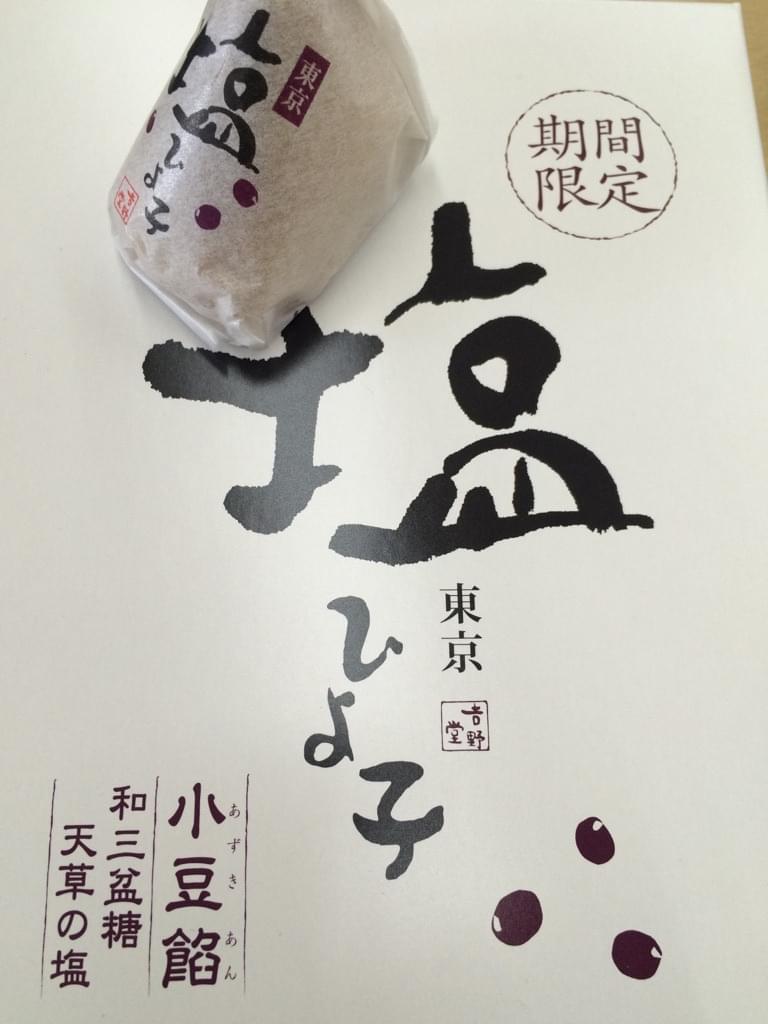 東京
塩
ひよ子
期間
限定
塩
ひよ子
東京
吉野堂
小豆餡
あずきあん
和三盆糖
天草の塩